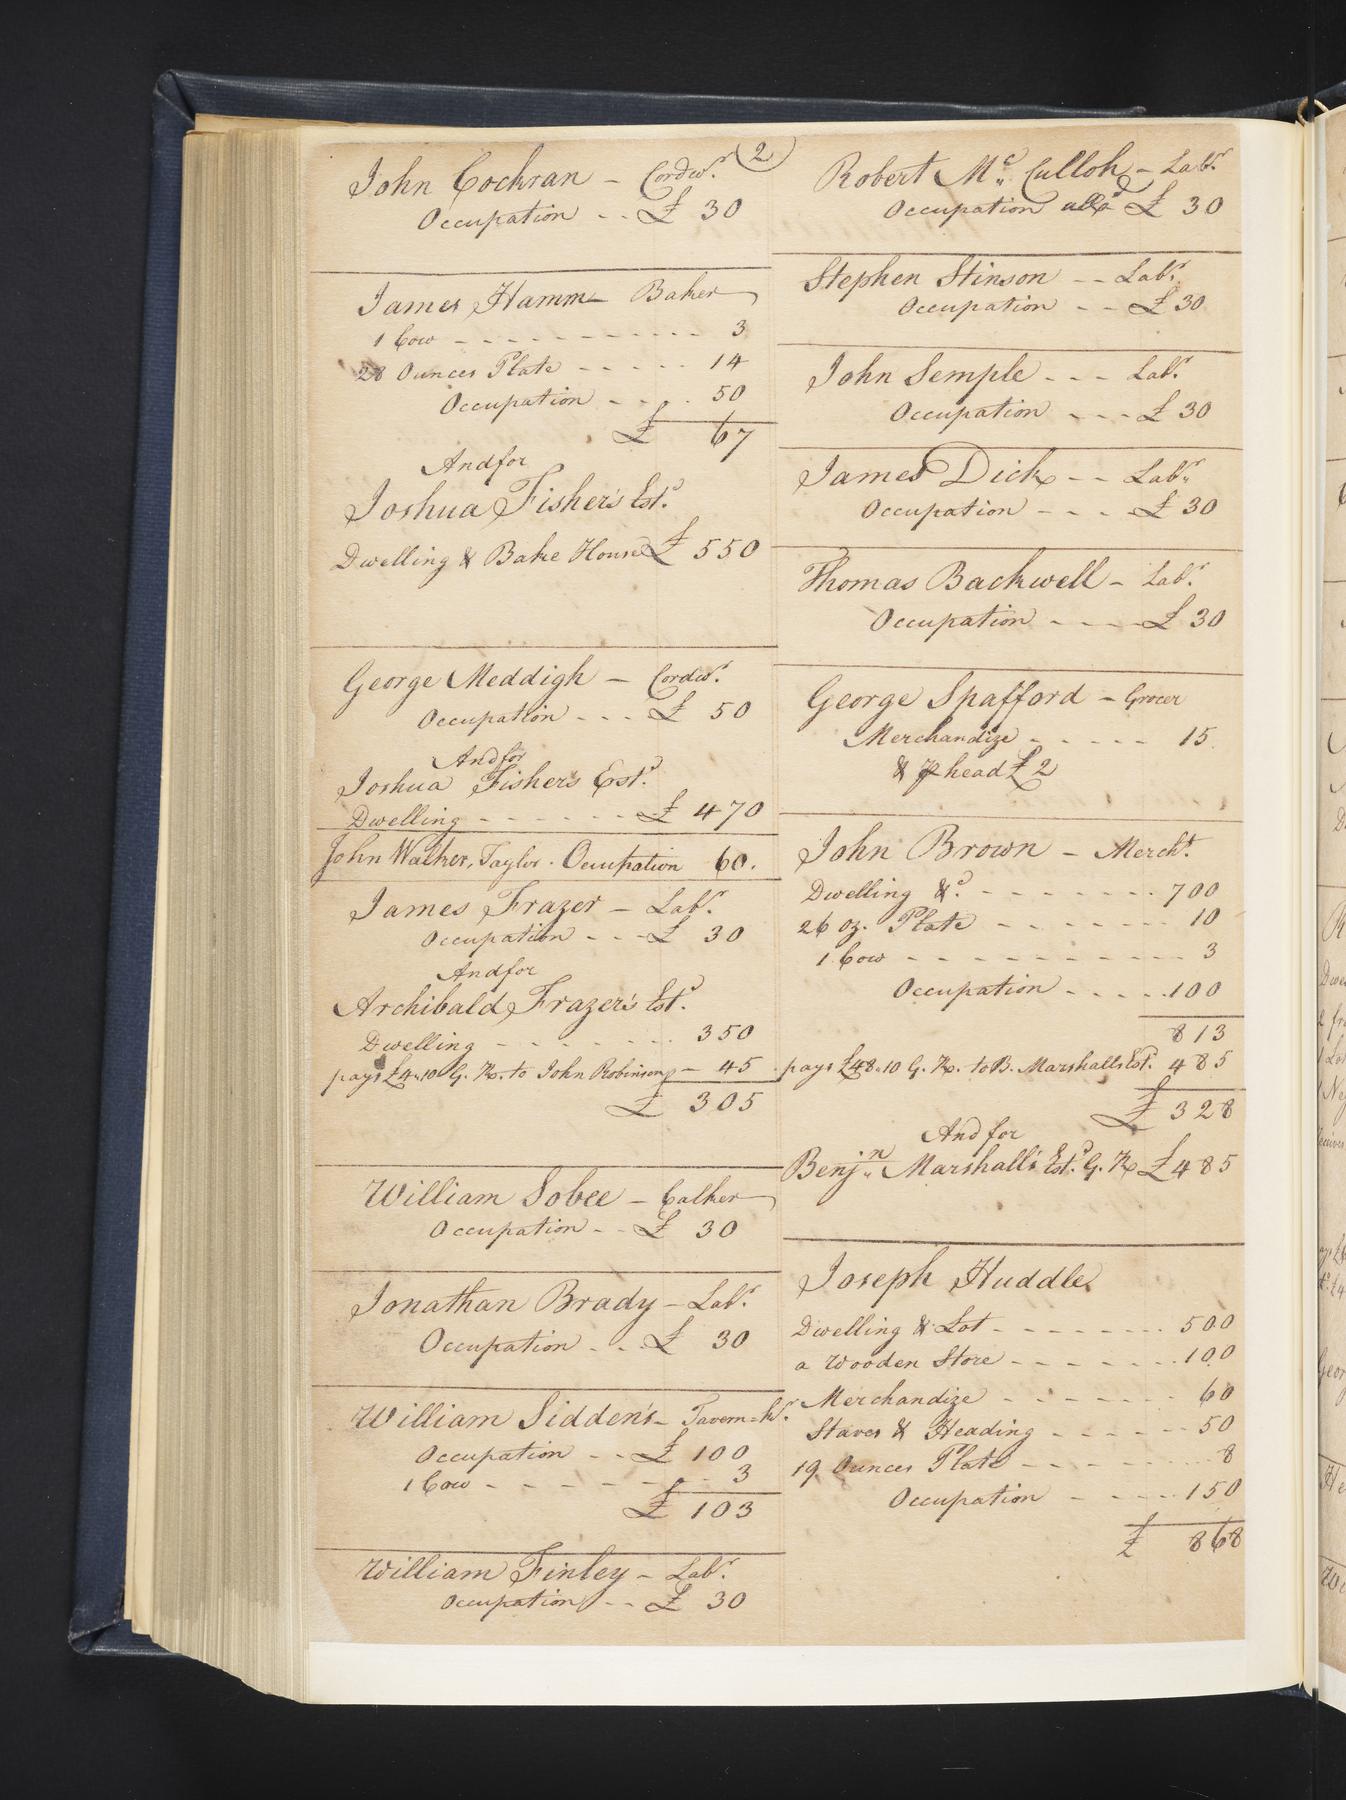 2
John Cockran – Cordwr.
Occupation - - £ 30
James Hamm – Baker
1 Cow - - - - - - - - - 3
28 Ounces Plate - - - - - 14
Occupation - - - - 50
£ 67
And for
Joshua Fisher's Estd.
Dwelling & Bake House £ 550
George Meddigh – Cordwr.
Occupation - - - £ 50
And for
Joshua Fisher's Estd.
Dwelling - - - - - - £ 470
John Walker, Taylor. Occupation 60.
James Frazer – Labr.
Occupation - - - £ 30
And for
Archibald Frazer's Estd.
Dwelling - - - - - - - 350
pays £4.,10 G. R. to John Robinson – 45
£ 305
William Sobee – Calker
Occupation - - £ 30
Jonathan Brady – Labr.
Occupation - - - £ 30
William Sidden's – Tavern=kr.
Occupation - - £ 100
1 Cow - - - - - - - 3
£ 103
William Finley – Labr.
Occupation - - £ 30
Robert Mc. Culloh – Labr.
Occupation £ 30
Stephen Stinson - - Labr.
Occupation - - £ 30
John Semple - - - Labr.
Occupation - - - £ 30
James Dick - - Labr.
Occupation - - - - £ 30
Thomas Backwell – Labr.
Occupation - - - - £ 30
George Spafford – Grocer
Merchandize - - - - - 15
& p head £ 2
John Brown – Mercht.
Dwelling &c. - - - - - - - - 700
26 oz. Plate - - - - - - - 10
1 Cow - - - - - - - - - - - 3
Occupation - - - - - 100
813
pays £48.,10 G. R. to B. Marshalls Estd. 485
£ 328
And for
Benjn. Marshall's Estd. G. R. £ 485
Joseph Huddle
Dwelling & Lot - - - - - - - - 500
a Wooden Store - - - - - - - 100
Merchandize - - - - - - 60
Staves & Heading - - - - - - 50
19 Ounces Plate - - - - - - - - 8
Occupation - - - - - 150
£ 868